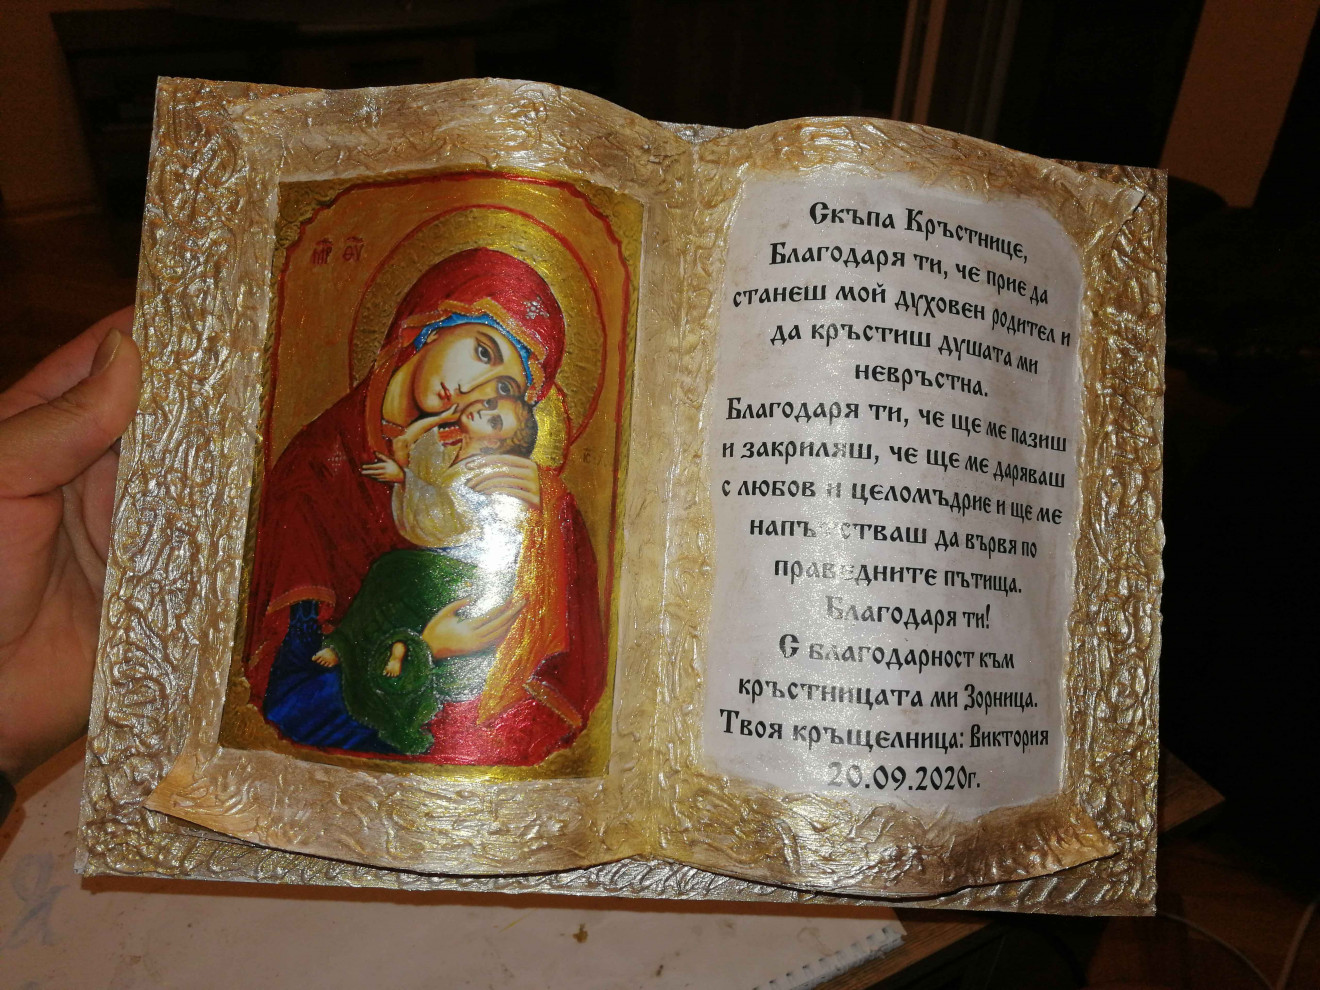 МР ѲУ
Скъпа Кръстнице,
Благодаря ти, че прие да
станеш мой духовен родител и
да кръстиш душата ми
невръстна.
Благодаря ти, че ще ме пазиш
и закриляш, че ще ме даряваш
с любов и целомъдрие и ще ме
напътстваш да вървя по
праведните пътища.
Благодаря ти!
С благодарност към
кръстницата ми Зорница.
Твоя кръщелница: Виктория
20.09.2020г.